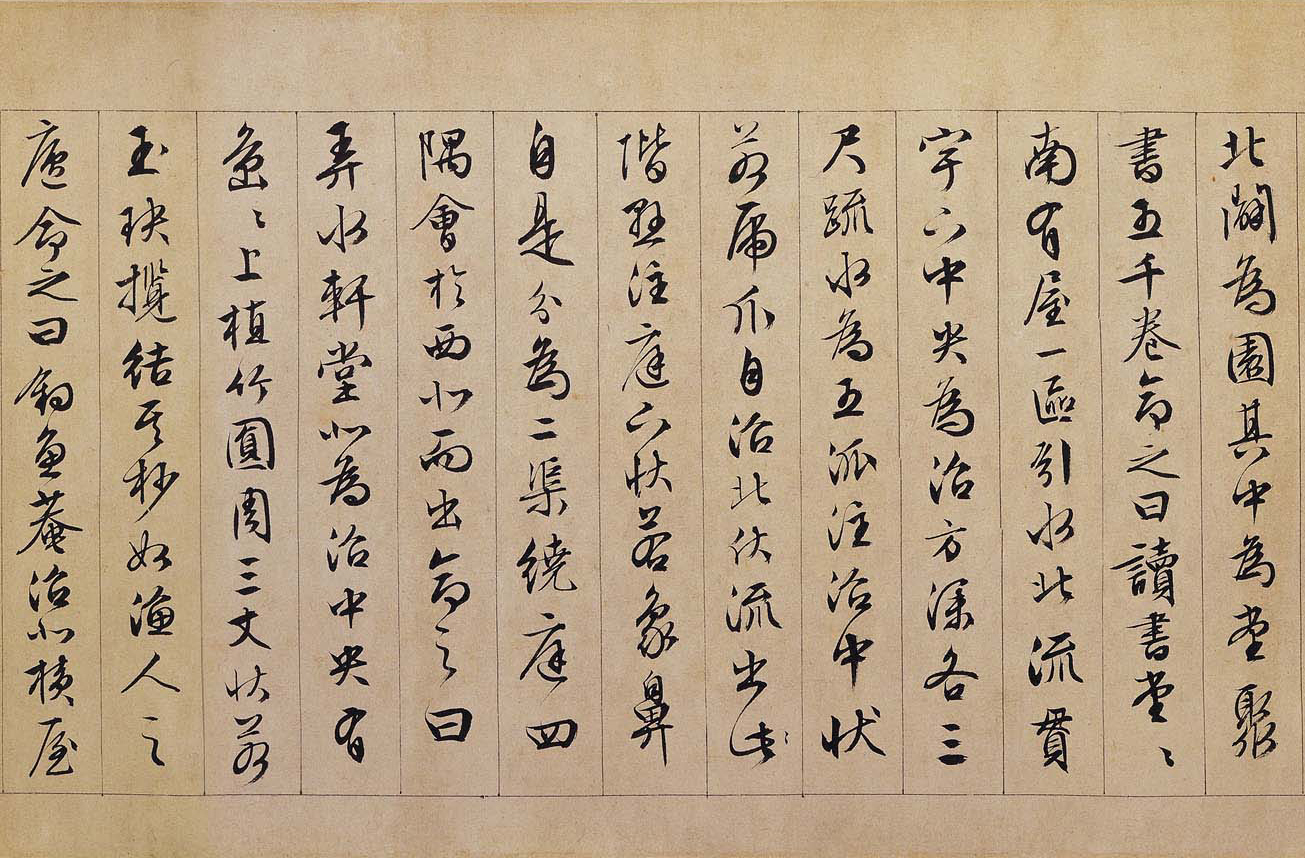 北闢為園其中為堂聚
書五千卷命之曰讀書堂〻
南有屋一區引水北流貫
宇下中央為沼方深各三
尺疏水為五派注沼中狀
若虎爪自沼北伏流出北
階懸注庭下狀若象鼻
自是分為二渠繞庭四
隅會於西北而出命之曰
弄水軒堂北為沼中央有
島〻上植竹圓周三丈狀若
玉玦攬結其杪如漁人之
廬命之曰釣魚菴沼北橫屋